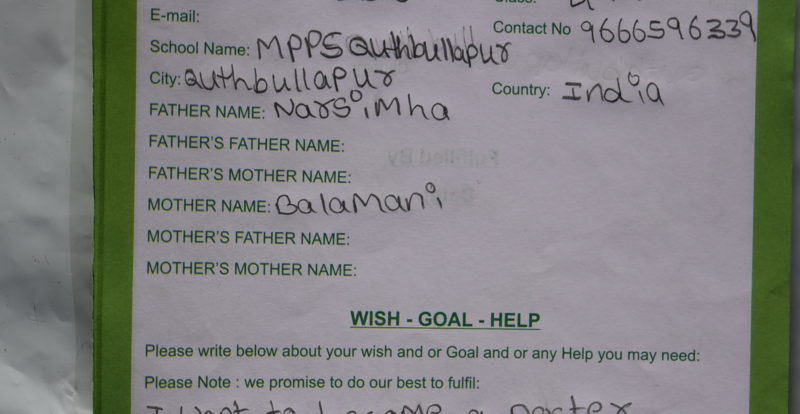 E-mail:
Contact No 9666596339
School Name: MPPS Quthbullapur
City: Quthbullapur
Country: India
FATHER NAME: Narsimha
FATHER'S FATHER NAME:
FATHER'S MOTHER NAME:
MOTHER NAME: Balamani
MOTHER'S FATHER NAME:
MOTHER'S MOTHER NAME:
WISH - GOAL - HELP
Please write below about your wish and or Goal and or any Help you may need:
Please Note : we promise to do our best to fulfil:
I want to become a Docter